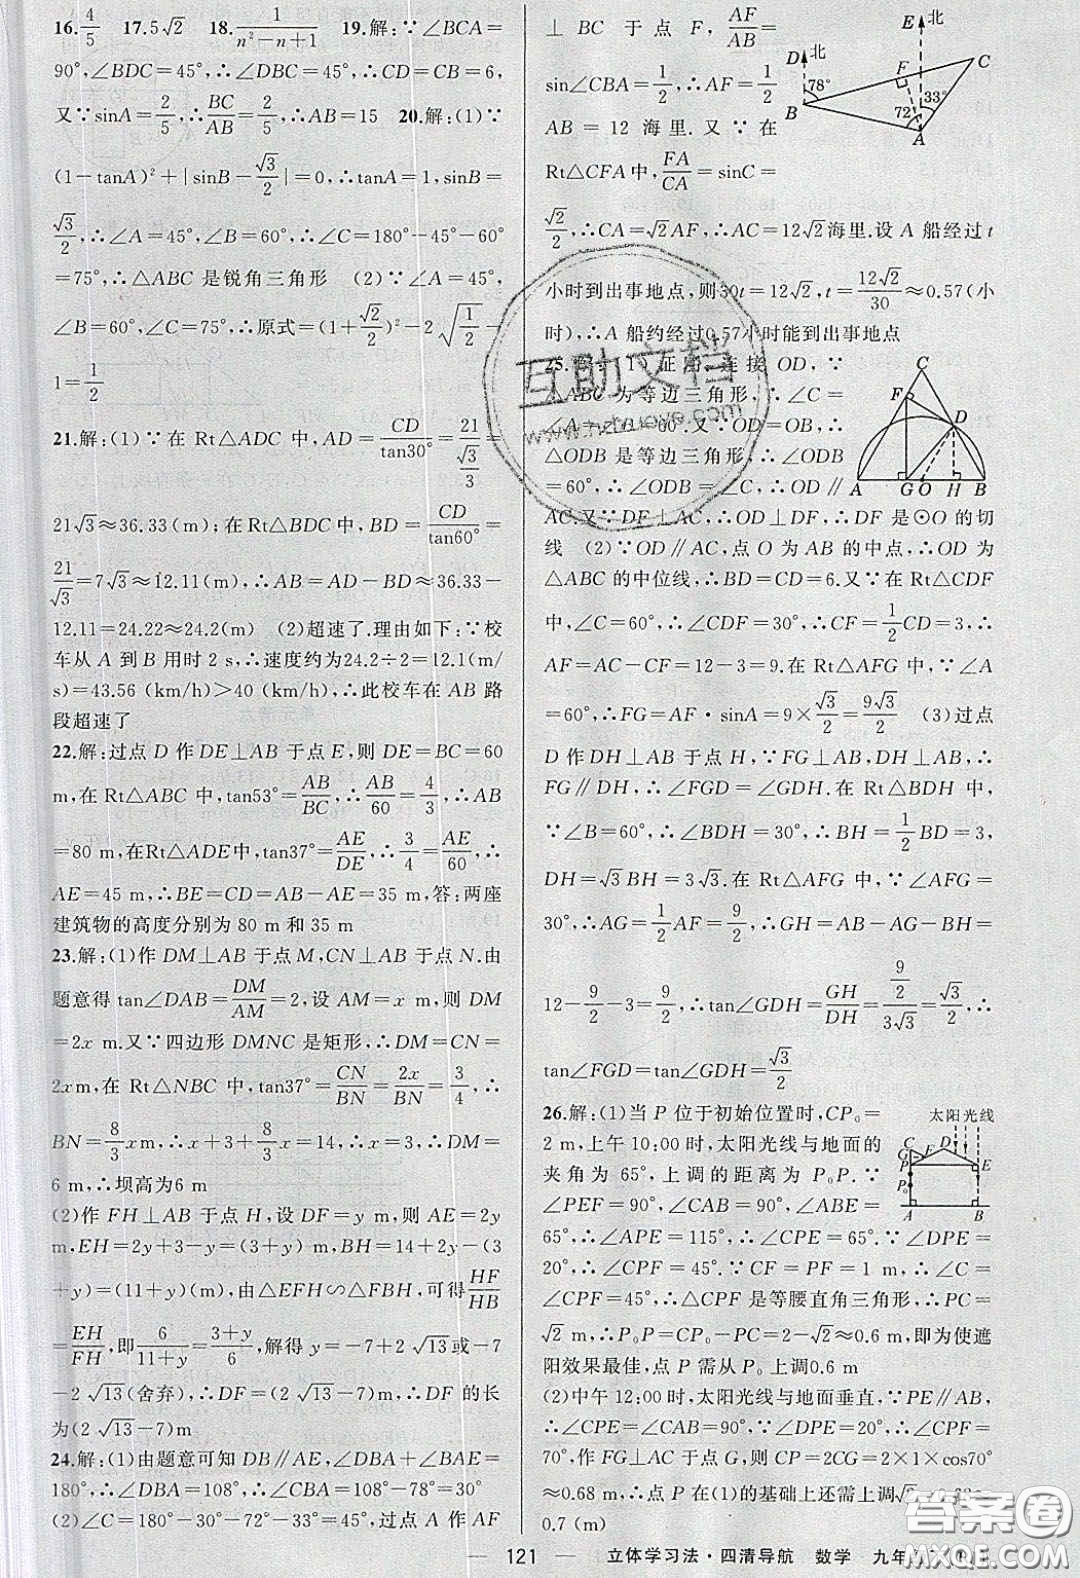 16. 4/5　17. 5√2　18. 1/(n²−n+1)　19.解:∵∠BCA=
90°,∠BDC=45°,∴∠DBC=45°,∴CD=CB=6,
又∵sinA=2/5,∴BC/AB=2/5,∴AB=15　20.解:(1)∵
(1−tanA)²+|sinB−√3/2|=0,∴tanA=1,sinB=
√3/2,∴∠A=45°,∠B=60°,∴∠C=180°−45°−60°
=75°,∴△ABC 是锐角三角形　(2)∵∠A=45°,
∠B=60°,∠C=75°,∴原式=(1+√2/2)²−2√(1/2)−
1=1/2
21.解:(1)∵在 Rt△ADC 中,AD=CD/tan30°=21/(√3/3)=
21√3≈36.33(m);在 Rt△BDC 中,BD=CD/tan60°=
21/√3=7√3≈12.11(m),∴AB=AD−BD=36.33−
12.11=24.22≈24.2(m)　(2)超速了.理由如下:∵校
车从 A 到 B 用时 2 s,∴速度约为24.2÷2=12.1(m/
s)=43.56 (km/h)>40 (km/h),∴此校车在 AB 路
段超速了
22.解:过点 D 作 DE⊥AB 于点 E,则 DE=BC=60
m,在 Rt△ABC 中,tan53°=AB/BC,∴AB/60=4/3,∴AB
=80 m,在Rt△ADE中,tan37°=AE/DE,∴3/4=AE/60,∴
AE=45 m,∴BE=CD=AB−AE=35 m,答:两座
建筑物的高度分别为 80 m 和 35 m
23.解:(1)作 DM⊥AB 于点 M,CN⊥AB 于点 N.由
题意得 tan∠DAB=DM/AM=2,设 AM=x m,则 DM
=2x m.又∵四边形 DMNC 是矩形,∴DM=CN=
2x m,在 Rt△NBC 中,tan37°=CN/BN=2x/BN=3/4,∴
BN=8/3 x m,∴x+3+8/3 x=14,∴x=3,∴DM=
6 m,∴坝高为6 m
(2)作 FH⊥AB 于点 H,设 DF=y m,则 AE=2y
m,EH=2y+3−y=(3+y) m,BH=14+2y−(3
+y)=(11+y)(m),由△EFH∽△FBH,可得HF/HB
=EH/FH,即6/(11+y)=(3+y)/6,解得 y=−7+2√13或−7
−2√13(舍弃),∴DF=(2√13−7)m,∴DF 的长
为(2√13−7)m
24.解:(1)由题意可知 DB∥AE,∠DBA+∠BAE=
180°,∴∠DBA=108°,∴∠DBA=108°−78°=30°
(2)∠C=180°−30°−72°−33°=45°,过点 A 作 AF
⊥ BC 于点 F, AF/AB=
sin∠CBA=1/2,∴AF=1/2
AB=12 海里.又∵在
Rt△CFA中,FA/CA=sinC=
√2/2,∴CA=√2AF,∴AC=12√2海里.设 A 船经过 t
小时到出事地点,则30t=12√2,t=12√2/30≈0.57(小
时),∴A 船约经过0.57小时能到出事地点
D 北 E 北 F C 78° B 72° 33° A
25. (1)证明:连接 OD,∵
△ABC为等边三角形,∴∠C=
∠A=∠B=60°.又∵OD=OB,∴
△ODB 是等边三角形,∴∠ODB
=60°,∴∠ODB=∠C,∴OD∥
AC.又∵DF⊥AC,∴OD⊥DF,∴DF 是⊙O 的切
线　(2)∵OD∥AC,点 O 为 AB 的中点,∴OD 为
△ABC 的中位线,∴BD=CD=6.又∵在Rt△CDF
中,∠C=60°,∴∠CDF=30°,∴CF=1/2CD=3,∴
AF=AC−CF=12−3=9.在 Rt△AFG 中,∵∠A
=60°,∴FG=AF·sinA=9×√3/2=9√3/2　(3)过点
D 作 DH⊥AB 于点 H,∵FG⊥AB,DH⊥AB,∴
FG∥DH,∴∠FGD=∠GDH.在 Rt△BDH 中,
∵∠B=60°,∴∠BDH=30°,∴BH=1/2BD=3,
DH=√3BH=3√3.在 Rt△AFG 中,∵∠AFG=
30°,∴AG=1/2AF=9/2,∴GH=AB−AG−BH=
12−9/2−3=9/2,∴tan∠GDH=GH/DH=(9/2)/(3√3)=√3/2,∴
tan∠FGD=tan∠GDH=√3/2
C F D A G O H B
26.解:(1)当 P 位于初始位置时,CP₀=
2 m,上午 10:00时,太阳光线与地面的
夹角为 65°,上调的距离为 P₀P.∵
∠PEF=90°,∠CAB=90°,∠ABE=
65°,∴∠APE=115°,∴∠CPE=65°,
∴∠CPF=45°.∵CF=PF=1 m,∴∠C=
∠CPF=45°,∴△CPF 是等腰直角三角形,∴PC=
√2 m,∴P₀P=CP₀−PC=2−√2≈0.6 m,即为使遮
阳效果最佳,点 P 需从 P₀ 上调0.6 m
(2)中午 12:00时,太阳光线与地面垂直,∵PE∥AB,
∴∠CPE=∠CAB=90°,∵∠DPE=20°,∴∠CPF=
70°,作 FG⊥AC 于点 G,则 CP=2CG=2×1×cos70°
≈0.68 m,∴点 P 在(1)的基础上还需上调
0.7 (m)
太阳光线
C D G F P E P₀ A B
互助文档
121　立体学习法·四清导航　数学　九年
答案圈